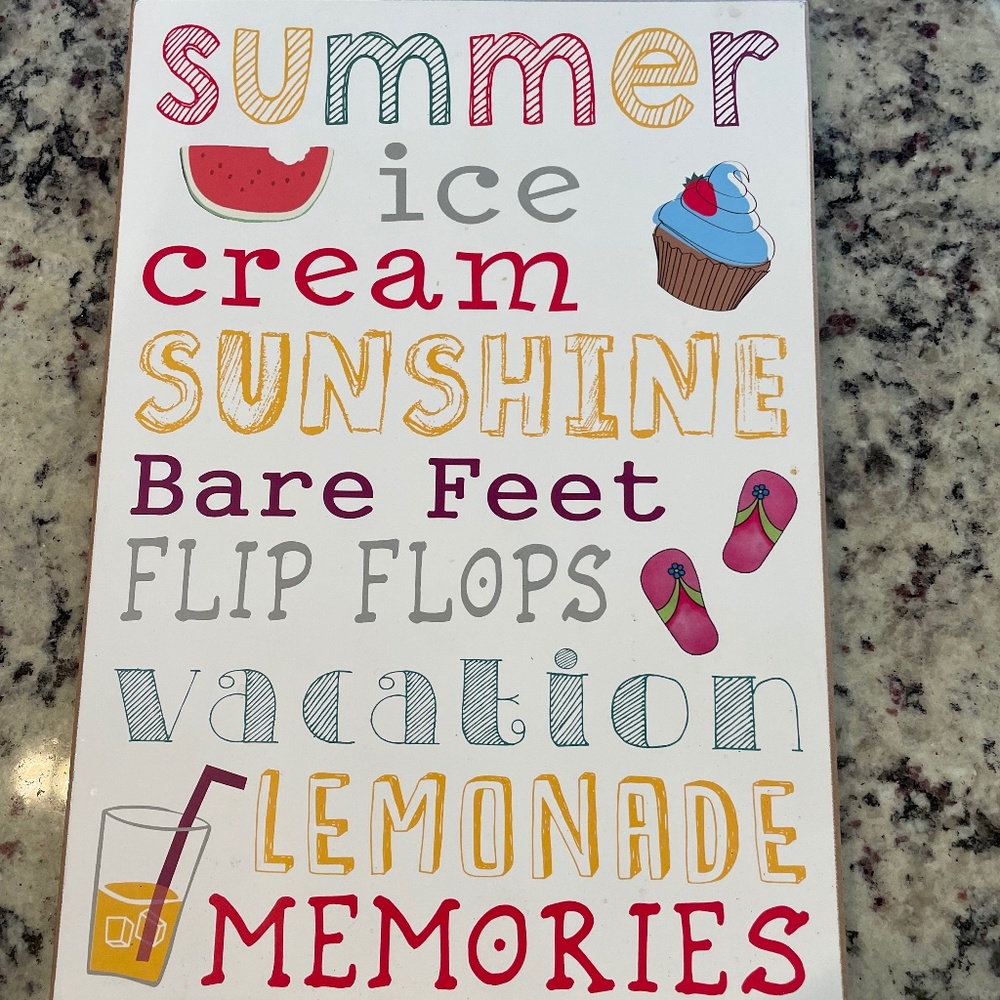 summer
ice
cream
SUNSHINE
Bare Feet
FLIP FLOPS
vacation
LEMONADE
MEMORIES